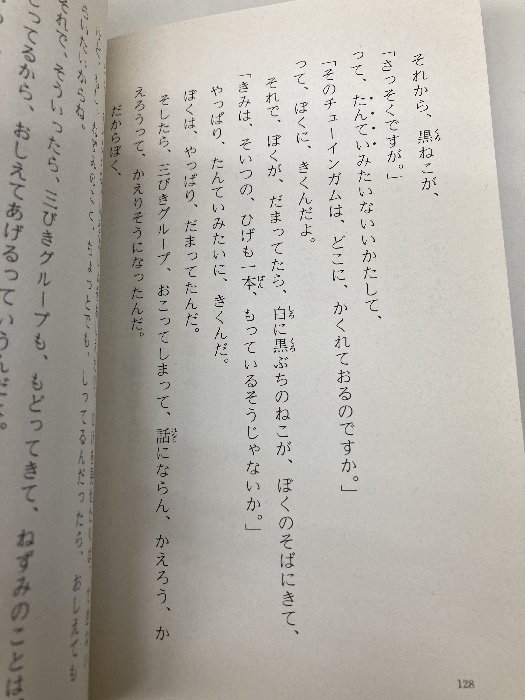 それから、黒ねこが、
「さっそくですが。」
って、たんていみたいないいかたして、
「そのチューインガムは、どこに、かくれておるのですか。」
って、ぼくに、きくんだよ。
それで、ぼくが、だまってたら、白に黒ぶちのねこが、ぼくのそばにきて、
「きみは、そいつの、ひげも一本、もっているそうじゃないか。」
やっぱり、たんていみたいに、きくんだ。
ぼくは、やっぱり、だまってたんだ。
そしたら、三びきグループ、おこってしまって、話にならん、かえろう、か
えろうって、かえりそうになったんだ。
だからぼく、
128
ちょっとでも、しってるんだったら、おしえても
さいたいからね。
それで、そういったら、三びきグループも、もどってきて、ねずみのことは、
ってるから、おしえてあげるっていうんだよ。